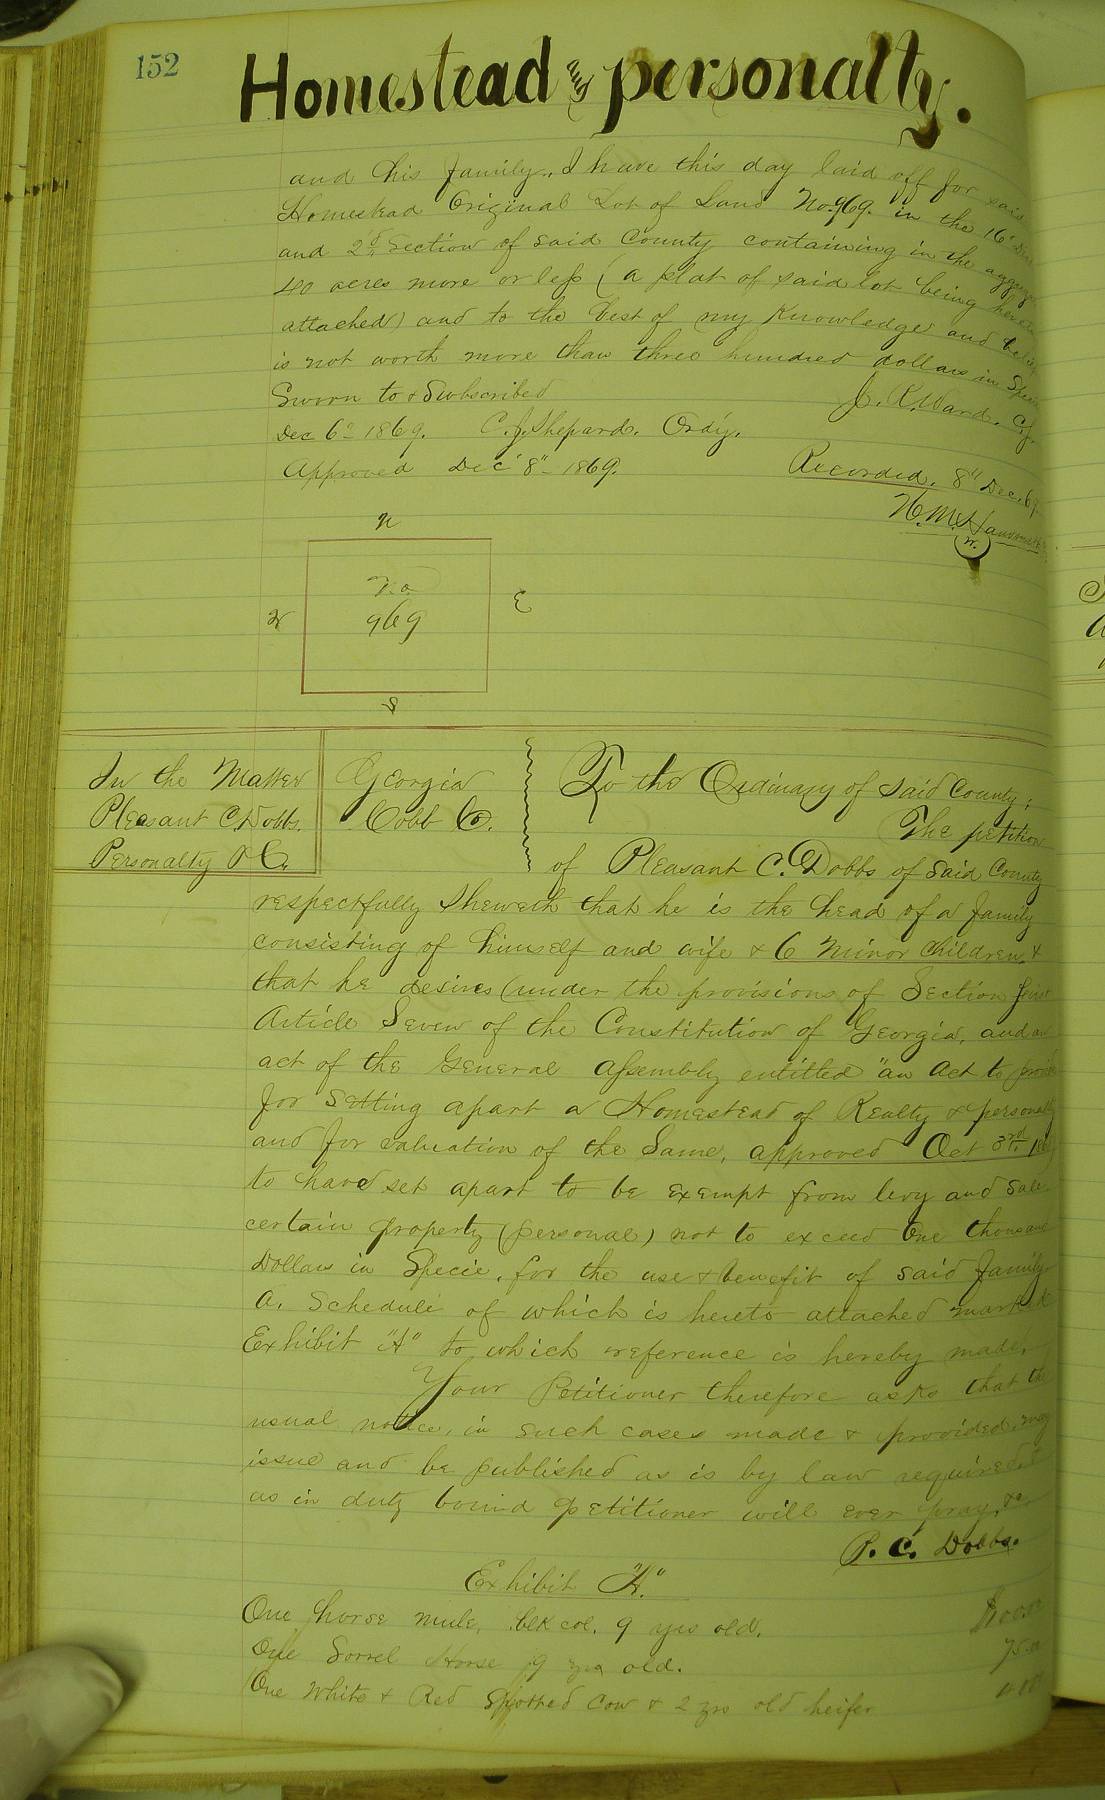 152
Homestead & personalty.
and his family. I have this day laid off for said
Homestead Original Lot of Land No. 969. in the 16" Dist
and 2d Section of said County containing in the
40 acres more or less (a plat of said lot being hereto
attached) and to the best of my Knowledge and belief
is not worth more than three hundred dollars in Specie
Sworn to & Subscribed J. K. Ward. C.S.
Dec 6" 1869. C. J. Shepard. Ordy.
Approved Dec 8" 1869. Recorded. 8" Dec. 69
N
No
W 969 E
S
In the Matter Georgia To the Ordinary of said County;
Pleasant C. Dobbs. Cobb Co. The petition
Personalty of Pleasant C. Dobbs of said County
respectfully sheweth that he is the head of a family
consisting of himself and wife & 6 minor children &
that he desires (under the provisions of Section first
Article Seven of the Constitution of Georgia, and an
act of the General Assembly entitled "an Act to provide
for Setting apart a Homestead of Realty & personalty
and for valuation of the Same, approved Oct 3rd
to have set apart to be exempt from levy and sale
certain property (personal) not to exceed One thousand
Dollars in Specie, for the use & benefit of said family
a. Schedule of which is hereto attached marked
Exhibit "A" to which reference is hereby made.
Your Petitioner therefore asks that the
usual notice, in such cases made & provided, may
issue and be published as is by law required. &
as in duty bound petitioner will ever pray, &c
P. C. Dobbs.
Exhibit "A."
One horse mule, blk col. 9 yrs old. $100.00
One Sorrel Horse 9 yrs old. 75.00
One White & Red Spotted Cow & 2 yrs old heifer